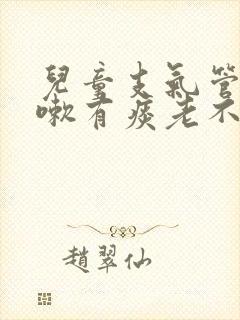 兒童支氣管
嗽有痰老不
趙翠仙